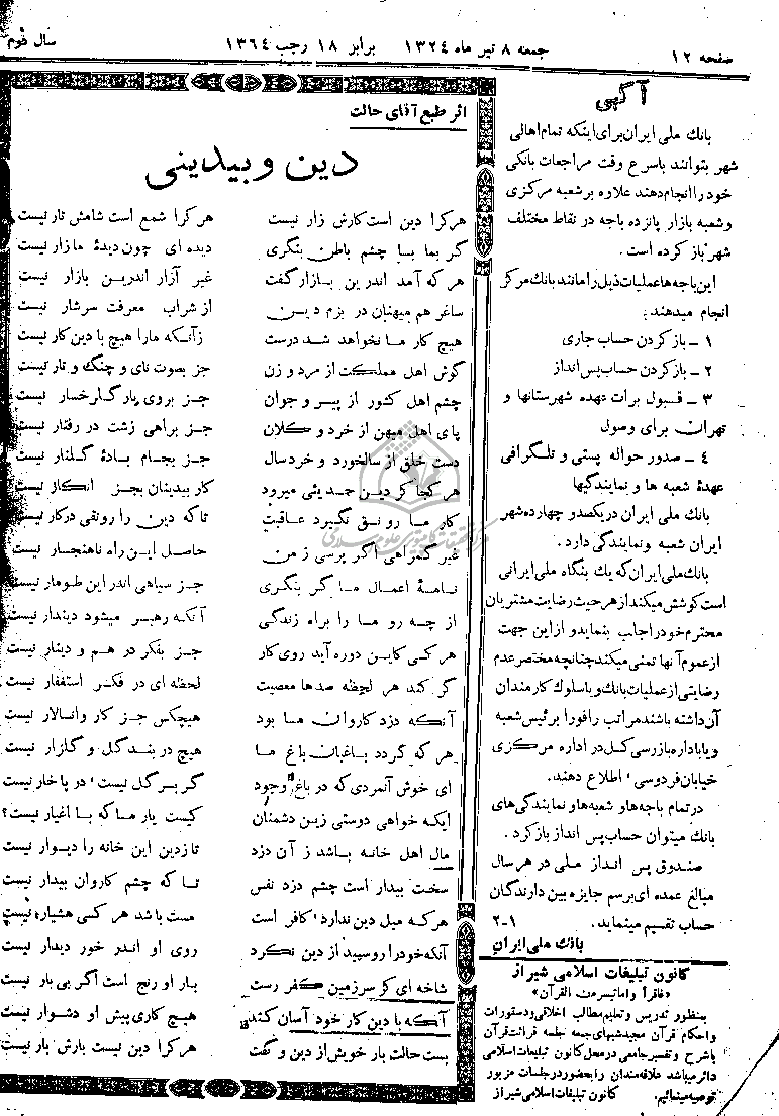 صفحه ۱۲
جمعه ۸ تیر ماه ۱۳۲۴ برابر ۱۸ رجب ۱۳۶۴
سال دوم
آگهی
بانك ملی ایران برای اینکه تمام اهالی
شهر بتوانند باسرع وقت مراجعات بانکی
خود را انجام دهند علاوه بر شعبه مرکزی
وشعبه بازار پانزده باجه در نقاط مختلف
شهر باز کرده است .
این باجه ها عملیات ذیل را مانند بانك مرکز
انجام میدهند :
۱ ــ باز کردن حساب جاری
۲ ــ باز کردن حساب پس انداز
۳ ــ قبول برات بعهده شهرستانها و
تهران برای وصول
٤ ــ صدور حواله پستی و تلگرافی
عهدۀ شعبه ها و نمایندگیها
بانك ملی ایران در یکصد و چهارده شهر
ایران شعبه ونمایندگی دارد .
بانك ملی ایران که یك بنگاه ملی ایرانی
است کوشش میکند از هر حیث رضایت مشتریان
محترم خود را جلب بنماید و از این جهت
از عموم آنها تمنی میکند چنانچه مختصر عدم
رضایتی از عملیات بانك و یا سلوك کارمندان
آن داشته باشند مراتب را فورا برئیس شعبه
و یا باداره بازرسی کل در اداره مرکزی
خیابان فردوسی ، اطلاع دهند.
در تمام باجه ها و شعبه ها و نمایندگی های
بانك میتوان حساب پس انداز باز کرد .
صندوق پس انداز ملی در هر سال
مبالغ عمده ای برسم جایزه بین دارندگان
حساب تقسیم مینماید. ۱-۲
بانك ملی ایران
کانون تبلیغات اسلامی شیراز
«فاقرأ وا ماتیسر من القرآن»
بمنظور تدریس و تعلیم مطالب اخلاقی و دستورات
واحکام قرآن مجید شبهای جمعه جلسه قرائت قرآن
باشرح و تفسیر جامعی در محل کانون تبلیغات اسلامی
دائر میباشد علاقه مندان را بحضور در جلسات مزبور
توصیه مینمائیم. کانون تبلیغات اسلامی شیراز
اثر طبع آقای حالت
دین و بیدینی
هر کرا دین است کارش زار نیست هر کرا شمع است شامش تار نیست
گر بما بسا چشم باطن بنگری دیده ای چون دیدۀ ما زار نیست
هر که آمد اندرین بازار گفت غیر آزار اندرین بازار نیست
ساغر هم میهنان در بزم دین از شراب معرفت سرشار نیست
هیچ کار ما نخواهد شد درست زآنکه مارا هیچ با دین کار نیست
گوش اهل مملکت از مرد و زن جز بصوت نای و چنگ و تار نیست
چشم اهل کشور از پیر و جوان جز بروی یار گلرخسار نیست
پای اهل میهن از خرد و کلان جز براهی زشت در رفتار نیست
دست خلق از سالخورد و خردسال جز بجام بادۀ گلنار نیست
هر کجا کز دین حدیثی میرود کار بیدینان بجز انکار نیست
کار ما رونق نگیرد عاقبت تا که دین را رونقی در کار نیست
غیر گمراهی اگر پرسی ز من حاصل این راه ناهنجار نیست
نامۀ اعمال ما گر بنگری جز سیاهی اندر این طومار نیست
از چه رو ما را براه زندگی آنکه رهبر میشود دیندار نیست
هر کسی کاین دوره آید روی کار جز بفکر درهم و دینار نیست
گر کند هر لحظه صدها معصیت لحظه ای در فکر استغفار نیست
آنکه دزد کاروان ما بود هیچکس جز کاروانسالار نیست
هر که گردد باغبان باغ ما هیچ در بند گل و گلزار نیست
ای خوش آنمردی که در باغ وجود گر بر گل نیست ، در پا خار نیست
ایکه خواهی دوستی زین دشمنان کیست یار ما که با اغیار نیست؟
مال اهل خانه باشد ز آن دزد تا ز دین این خانه را دیوار نیست
سخت بیدار است چشم دزد نفس تا که چشم کاروان بیدار نیست
هر که میل دین ندارد ، کافر است مست باشد هر کسی هشیار نیست
آنکه خود را روسپید از دین نکرد روی او اندر خور دیدار نیست
شاخه ای کز سرزمین کفر رست بار او رنج است اگر بی بار نیست
آنکه با دین کار خود آسان کند هیچ کاری پیش او دشوار نیست
بست حالت بار خویش از دین و گفت هر کرا دین نیست بارش بار نیست